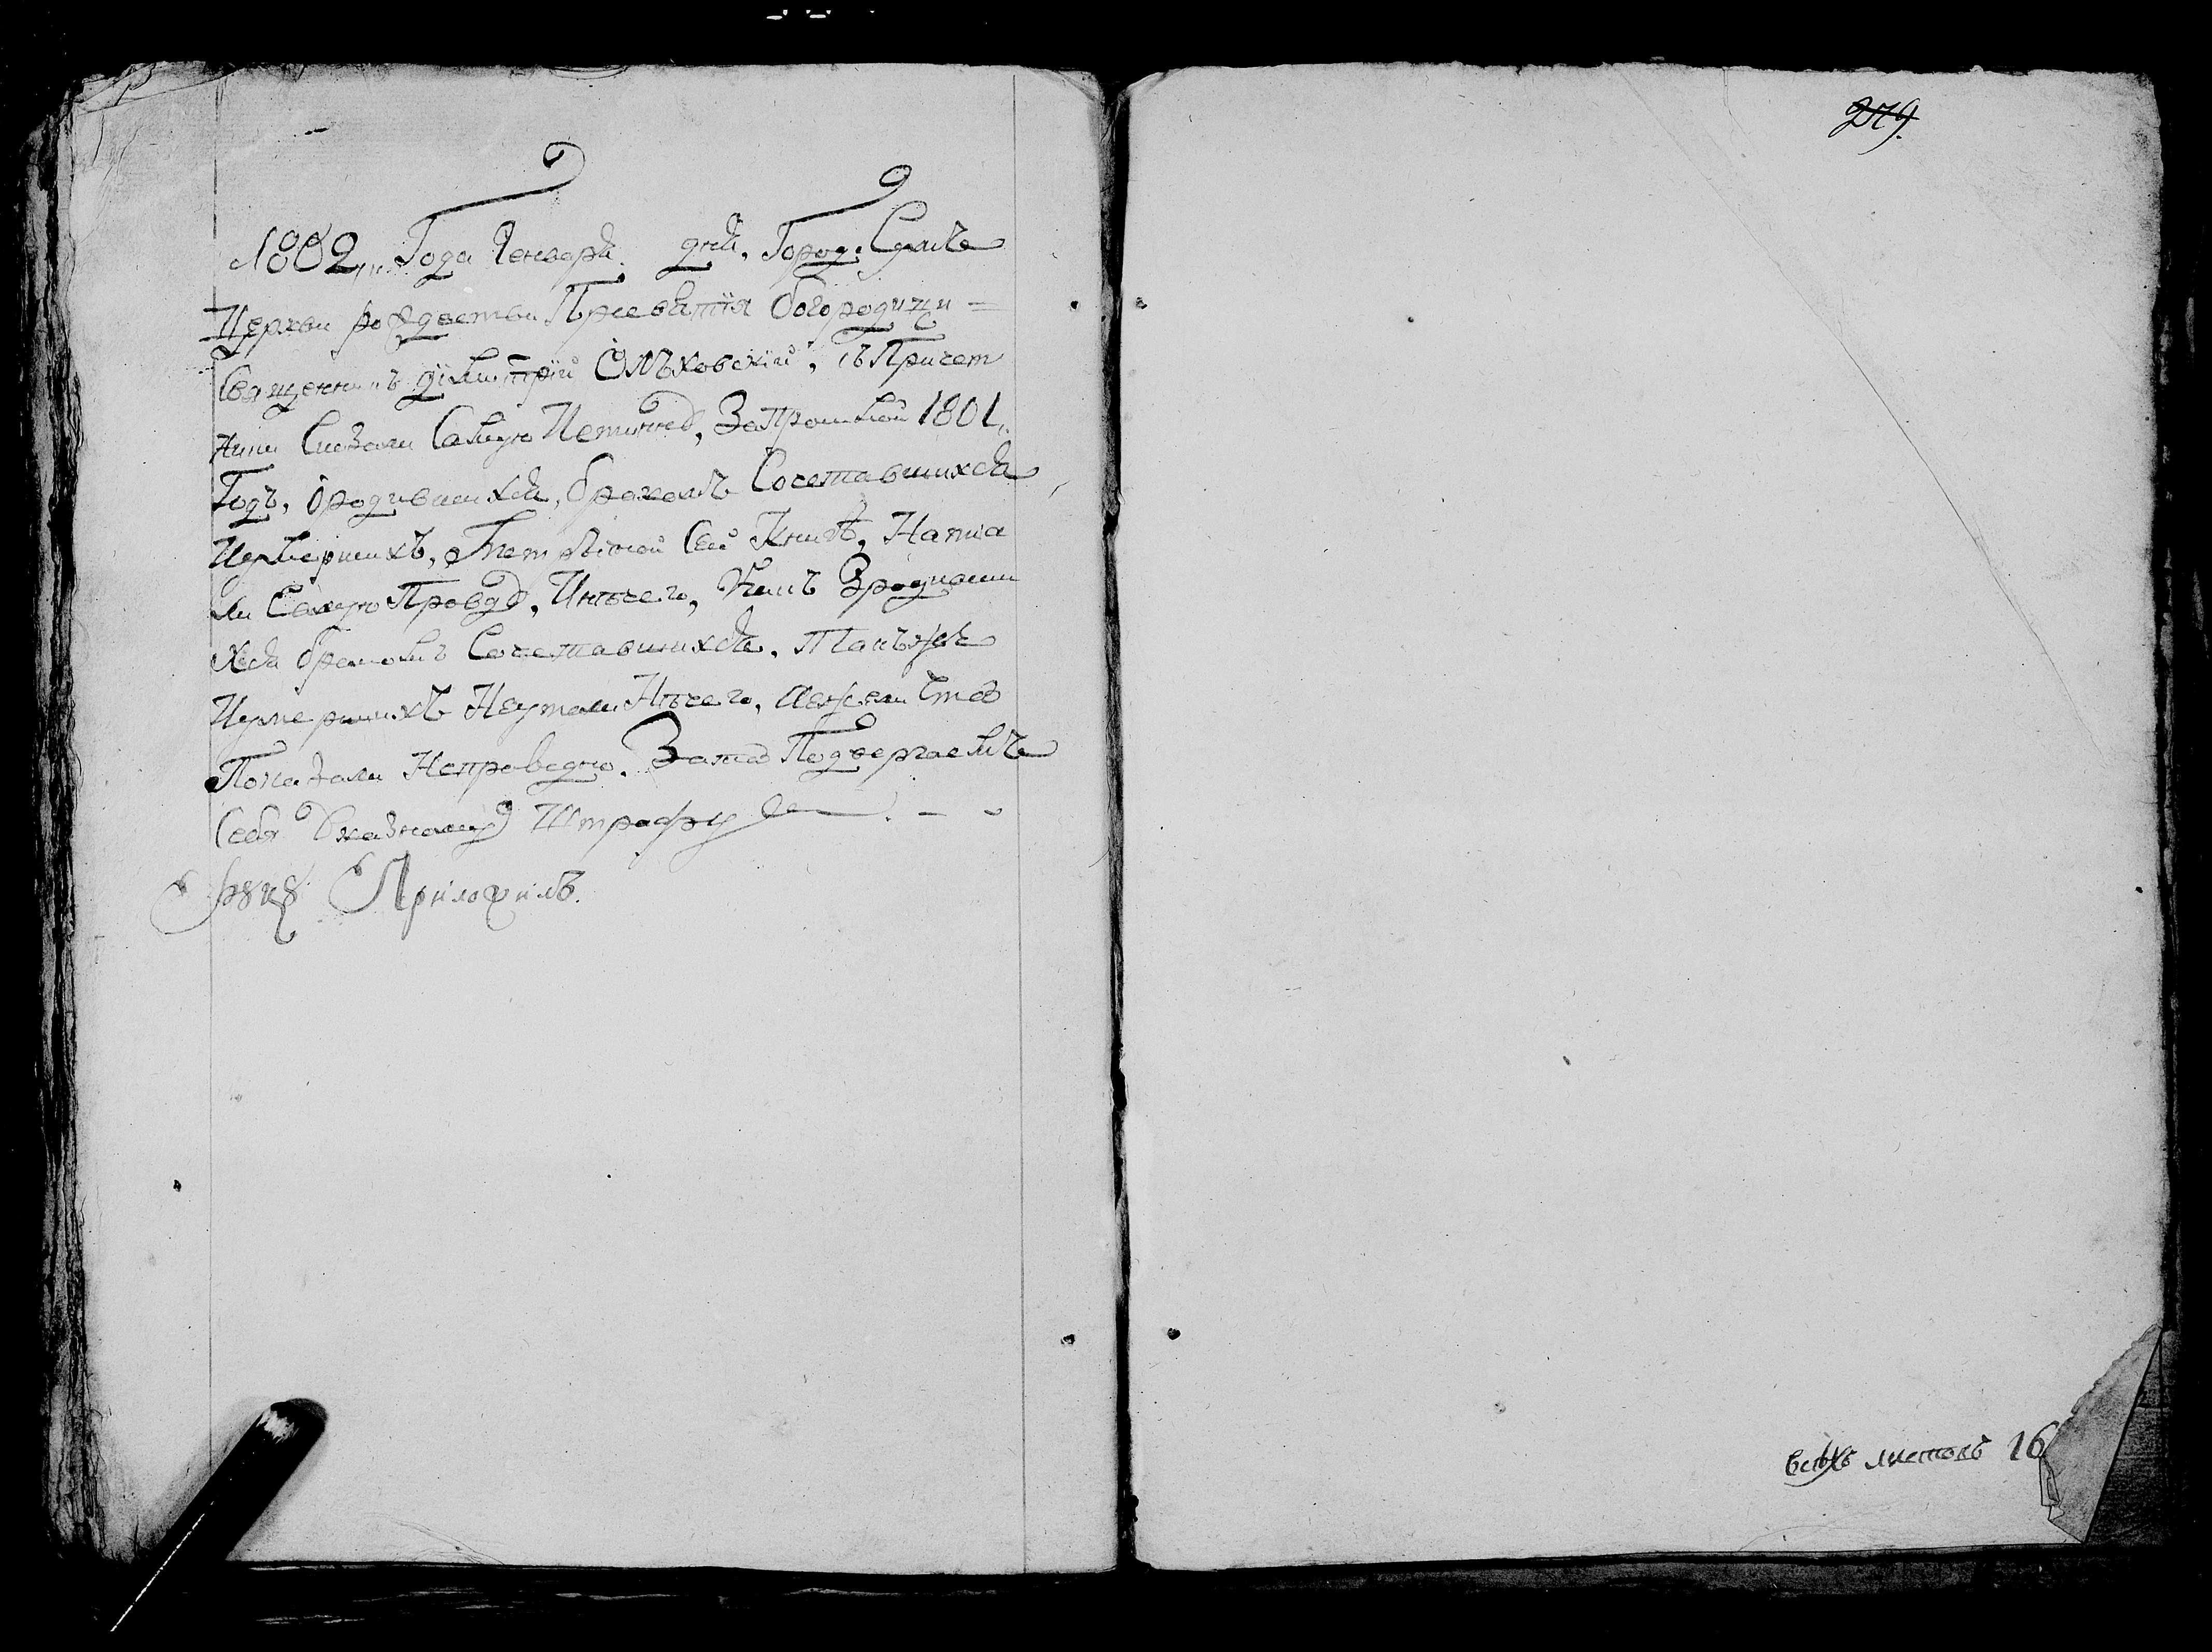 1802 „ Года Генваря дня, Город: Сумъ
Церкви рождества Пресвятїя богородици =
Священникъ Димитрїй Олховскїй, съ Причет
ники Сказали Самую Истинну, Запрошлой 1801 „
Годъ, ородившихся, бракомъ Сочетавшихся
Иумершихъ, Сей Книгѣ, Написа
ли Самую Правду, Инѣчего, Какъ Зродивши
хся бракомъ Сочетавшихся, Такъже
Иумершихъ Неутаили Нѣчего, Аежели Что
Показали Неправедно, Зато Подвергаемъ
Себя Указному Штрафу
руку Приложилъ.
279.
всѣхъ листовъ 16